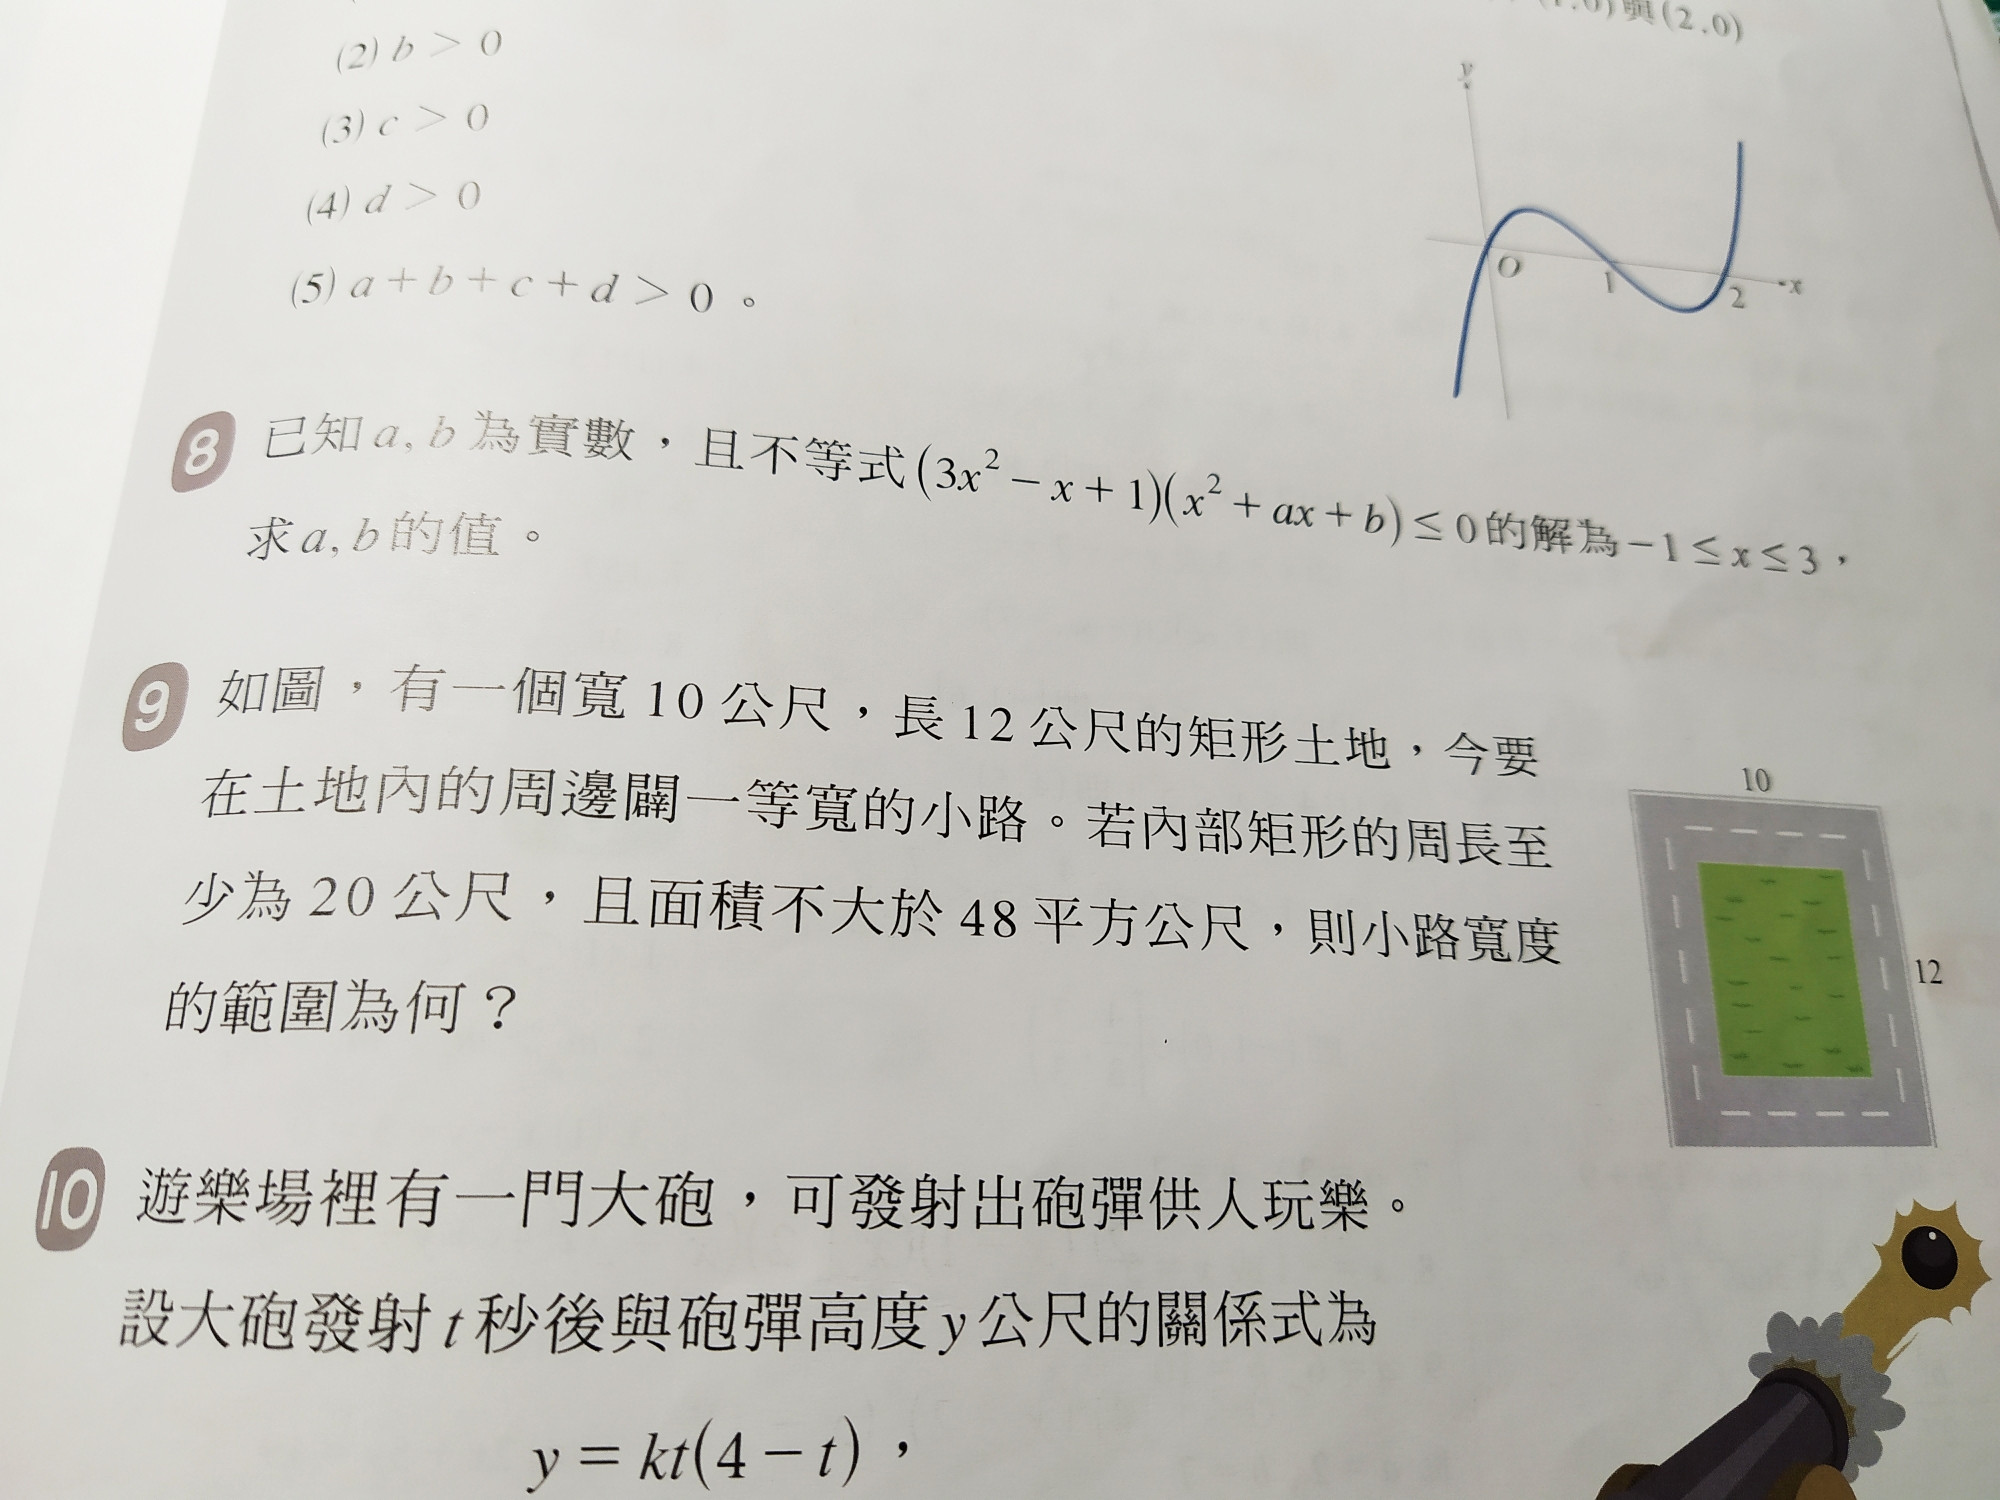 (1,0)與(2,0)
(2) b > 0
(3) c > 0
(4) d > 0
(5) a + b + c + d > 0。
y
O
1
2
x
8 已知a, b為實數，且不等式(3x² − x + 1)(x² + ax + b) ≤ 0的解為−1 ≤ x ≤ 3，
求a, b的值。
9 如圖，有一個寬10公尺，長12公尺的矩形土地，今要
在土地內的周邊闢一等寬的小路。若內部矩形的周長至
少為20公尺，且面積不大於48平方公尺，則小路寬度
的範圍為何？
10
12
10 遊樂場裡有一門大砲，可發射出砲彈供人玩樂。
設大砲發射t秒後與砲彈高度y公尺的關係式為
y = kt(4 − t)，